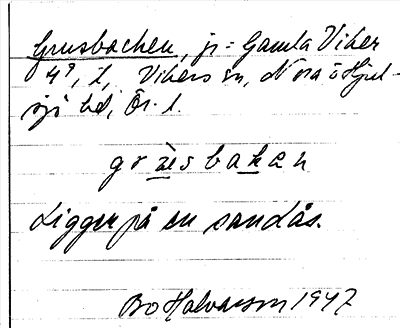 Grusbacken, jr: Gamla Viker
4⁹, l, Vikers sn, Nora o Hjul-
sjö bd, Ör. l.
grùsbakan
Ligger på en sandås.
Bo Halvarson 1947